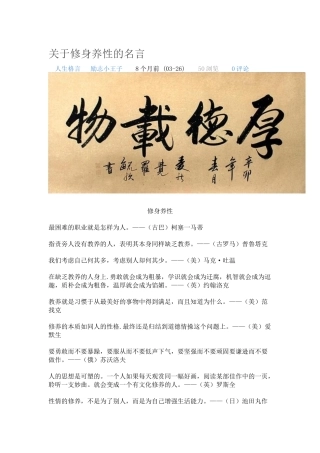 关于修身养性的名言
人生格言 励志小王子 8个月前 (03-26) 50浏览 0评论
厚德載物
修身养性
最困难的职业就是怎样为人。——（古巴）柯塞一马蒂
指责旁人没有教养的人，表明其本身同样缺乏教养。——（古罗马）普鲁塔克
我们考虑自己何其多，考虑别人却何其少。——（美）马克·吐温
在缺乏教养的人身上.勇敢就会成为粗暴，学识就会成为迂腐，机智就会成为逗
趣，质朴会成为粗鲁，温厚就会成为馅媚。——（英）约翰洛克
教养就是习惯于从最美好的事物中得到满足，而且知道为什么。——（美）范
找克
修养的本质如同人的性格.最终还是归结到道德情操这个问题上。——（美）爱
默生
要勇敢而不要暴躁，要服从而不要低声下气，要坚强而不要顽固要谦逊而不要
做作。——（俄）苏沃洛夫
人的思想是可塑的。一个人如果每天观赏同一幅好画，阅读某部佳作中的一页，
聆听一支妙曲。就会变成一个有文化修养的人。——（美）罗斯全
性情的修养，不是为了别人，而是为自己增强生活能力。——（日）池田久作